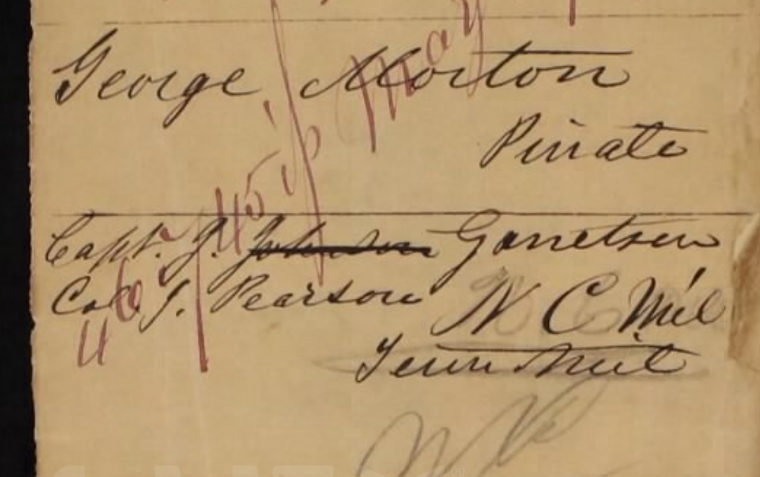 George Morton
Private
Capt. J. Johnson Garretson
Col J. Pearson N. C. Mil
Tenn Mil
May